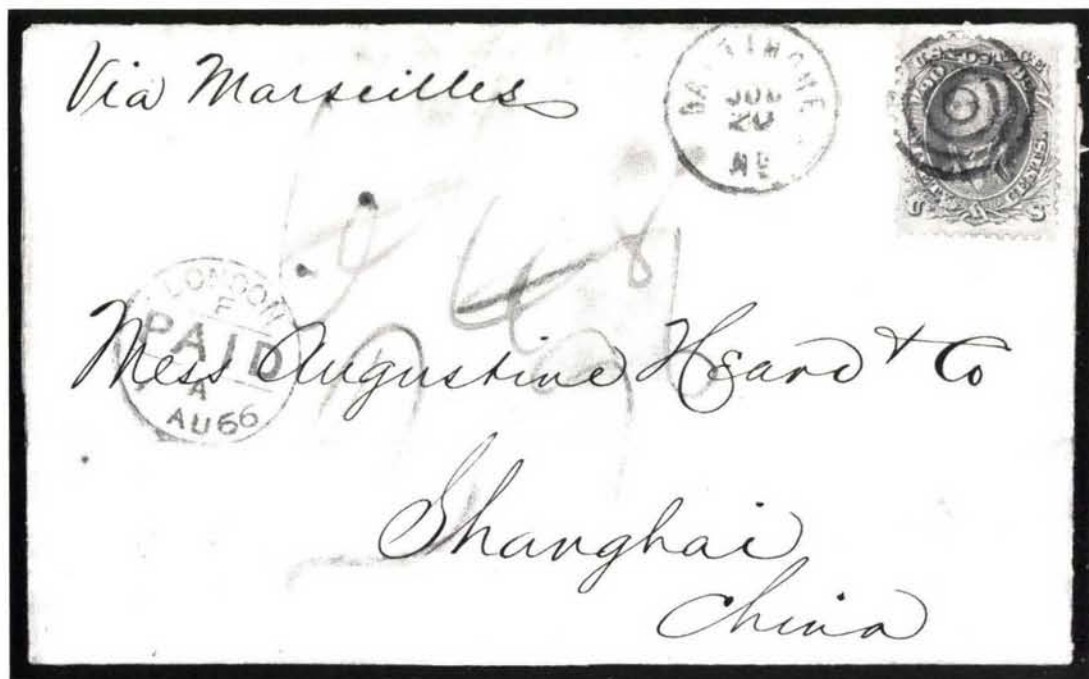 Via Marseilles
BALTIMORE
JUL
20
MD
U.S. POSTAGE
CENTS.
U S
LONDON
F
PAID
A
AU 66
Mess Augustine Heard & Co
Shanghai
China